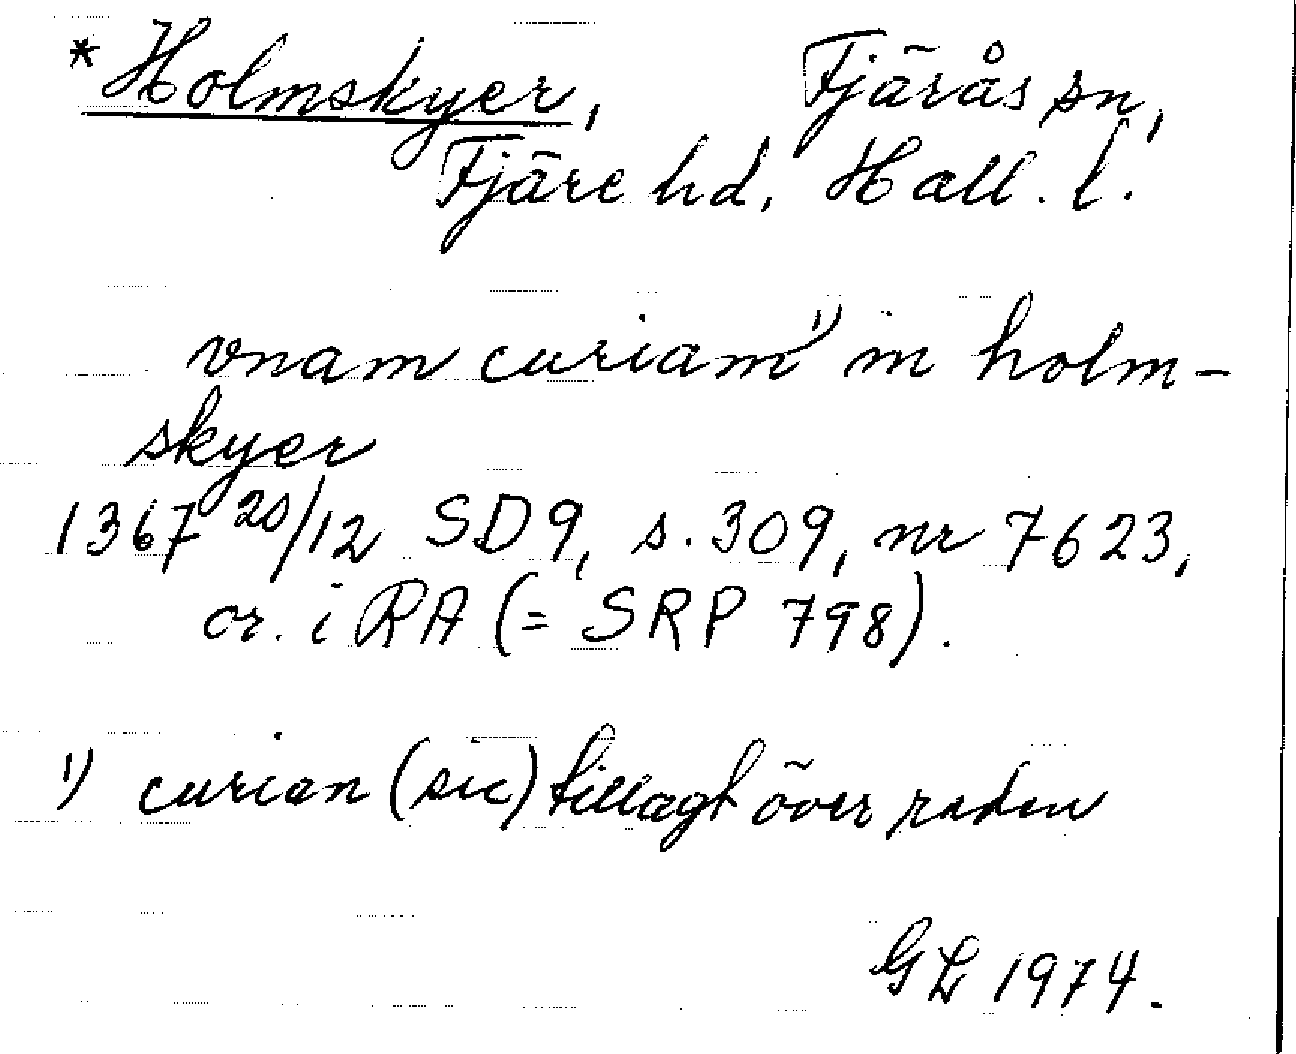 *Holmskyer, Fjärås sn,
Fjäre hd, Hall. l.
vnam curiam¹⁾ in holm-
skyer
1367 20/12 SD 9, s. 309, nr 7623,
or. i RA (= SRP 798).
¹⁾ curian (sic) tillagt över raden
GL 1974.